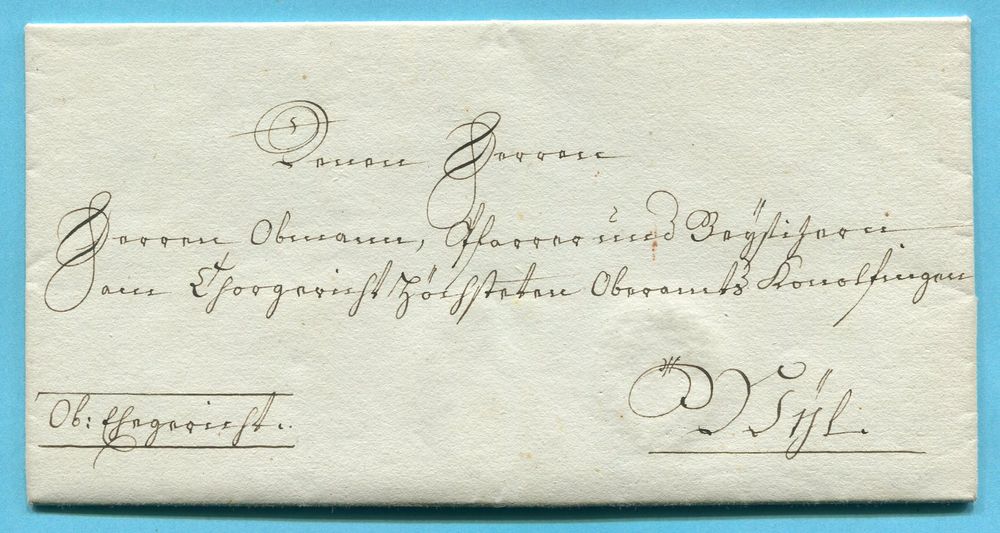 Denen Herren
Herren Obmann, Pfarrer und Beÿsitzern
am Chorgericht Höchsteten Oberamts Konolfingen
Wÿl.
Ob: Ehegericht.